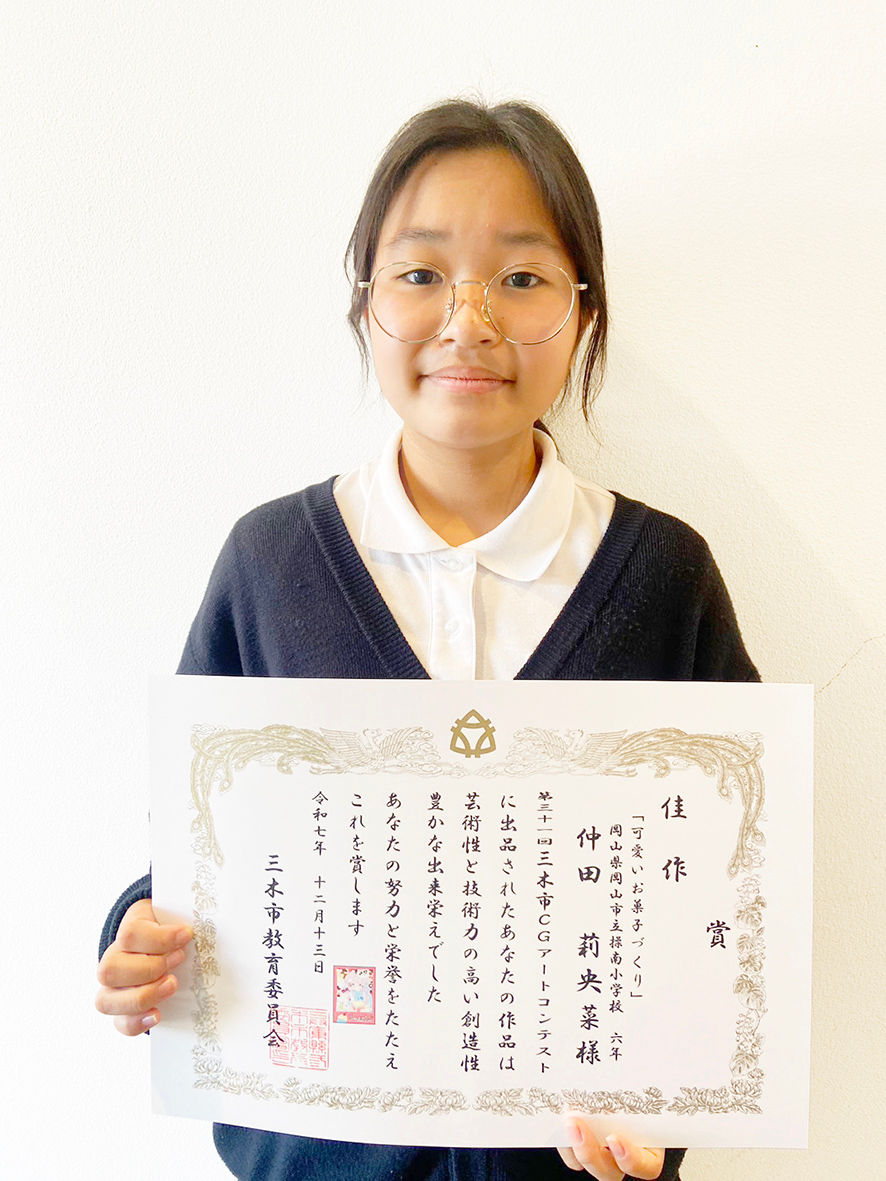 賞
佳作
「可愛いお菓子づくり」
岡山県岡山市立操南小学校 六年
仲田 莉央菜 様
第三十一回三木市CGアートコンテスト
に出品されたあなたの作品は
芸術性と技術力の高い創造性
豊かな出来栄えでした
あなたの努力と栄誉をたたえ
これを賞します
令和七年 十二月十三日
三木市教育委員会